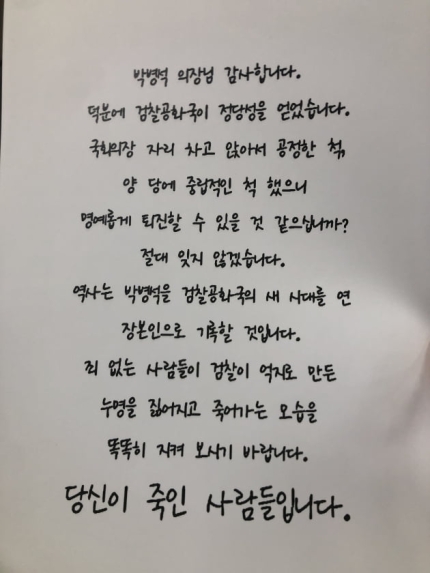 박병석 의장님 감사합니다.
덕분에 검찰공화국이 정당성을 얻었습니다.
국회의장 자리 차고 앉아서 공정한 척,
양 당에 중립적인 척 했으니
명예롭게 퇴진할 수 있을 것 같으십니까?
절대 잊지 않겠습니다.
역사는 박병석을 검찰공화국의 새 시대를 연
장본인으로 기록할 것입니다.
죄 없는 사람들이 검찰이 억지로 만든
누명을 짊어지고 죽어가는 모습을
똑똑히 지켜 보시기 바랍니다.
당신이 죽인 사람들입니다.